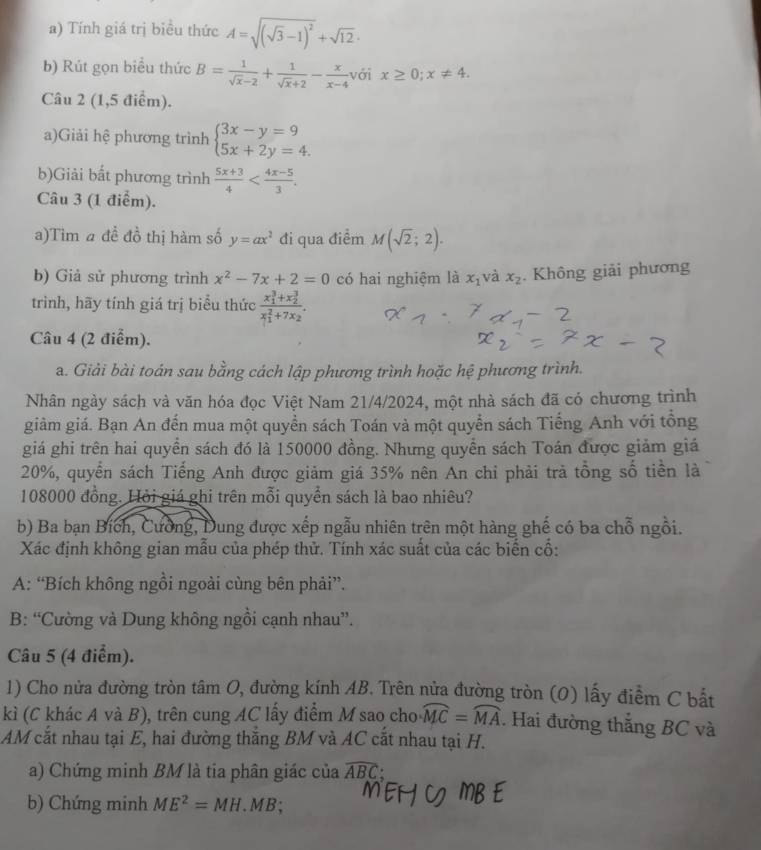 a) Tính giá trị biểu thức A = √((√3 − 1)²) + √12.
b) Rút gọn biểu thức B = 1/(√x−2) + 1/(√x+2) − x/(x−4) với x ≥ 0; x ≠ 4.
Câu 2 (1,5 điểm).
a)Giải hệ phương trình {3x − y = 9
5x + 2y = 4.
b)Giải bất phương trình (5x+3)/4 < (4x−5)/3.
Câu 3 (1 điểm).
a)Tìm a để đồ thị hàm số y = ax² đi qua điểm M(√2; 2).
b) Giả sử phương trình x² − 7x + 2 = 0 có hai nghiệm là x₁và x₂. Không giải phương
trình, hãy tính giá trị biểu thức (x₁³+x₂³)/(x₁²+7x₂).
x₁ . 7x₁ − 2
Câu 4 (2 điểm).
x₂ = 7x − 2
a. Giải bài toán sau bằng cách lập phương trình hoặc hệ phương trình.
Nhân ngày sách và văn hóa đọc Việt Nam 21/4/2024, một nhà sách đã có chương trình
giảm giá. Bạn An đến mua một quyển sách Toán và một quyển sách Tiếng Anh với tổng
giá ghi trên hai quyển sách đó là 150000 đồng. Nhưng quyển sách Toán được giảm giá
20%, quyển sách Tiếng Anh được giảm giá 35% nên An chỉ phải trả tổng số tiền là
108000 đồng. Hỏi giá ghi trên mỗi quyển sách là bao nhiêu?
b) Ba bạn Bích, Cường, Dung được xếp ngẫu nhiên trên một hàng ghế có ba chỗ ngồi.
Xác định không gian mẫu của phép thử. Tính xác suất của các biến cố:
A: “Bích không ngồi ngoài cùng bên phải”.
B: “Cường và Dung không ngồi cạnh nhau”.
Câu 5 (4 điểm).
1) Cho nửa đường tròn tâm O, đường kính AB. Trên nửa đường tròn (O) lấy điểm C bất
kì (C khác A và B), trên cung AC lấy điểm M sao cho M͡C = M͡A. Hai đường thẳng BC và
AM cắt nhau tại E, hai đường thẳng BM và AC cắt nhau tại H.
a) Chứng minh BM là tia phân giác của ABC;
MEH ∽ MBE
b) Chứng minh ME² = MH.MB;